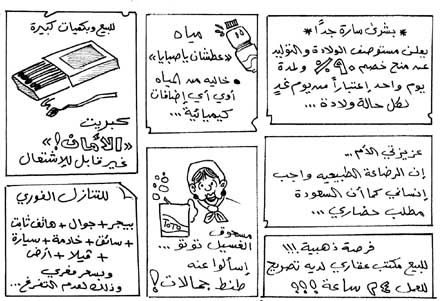 * بشرى سارة جداً *
يعلن مستوصف الولادة والتوليد
عن منح خصم ٩٠% ولمدة
يوم واحد إعتباراً من يوم غدٍ
لكل حالة ولادة ...
عزيزتي الأم ...
إن الرضاعة الطبيعيه واجب
إنساني كما أن السعودة
مطلب حضاري ...
فرصة ذهبية !!!
للبيع مكتب عقاري لديه تصريح
للعمل ٢٤ ساعة !؟!؟
مياه
«عطشان ياصبايا»
• خاليه من المياه
أوي أي إضافات
كيميائية ...
مسحوق
الغسيل توتو ...
إسألوا عنه
طنط جمالات !
TOTO
للبيع وبكميات كبيرة
كبريت
«الأمان !»
غير قابل للإشتعال
للتنازل الفوري
بيجر + جوال + هاتف ثابت
+ سائق + خادمة + سيارة
+ ڤيلا + أرض
وبسعر مغري
وذلك لعدم التفرغ ...